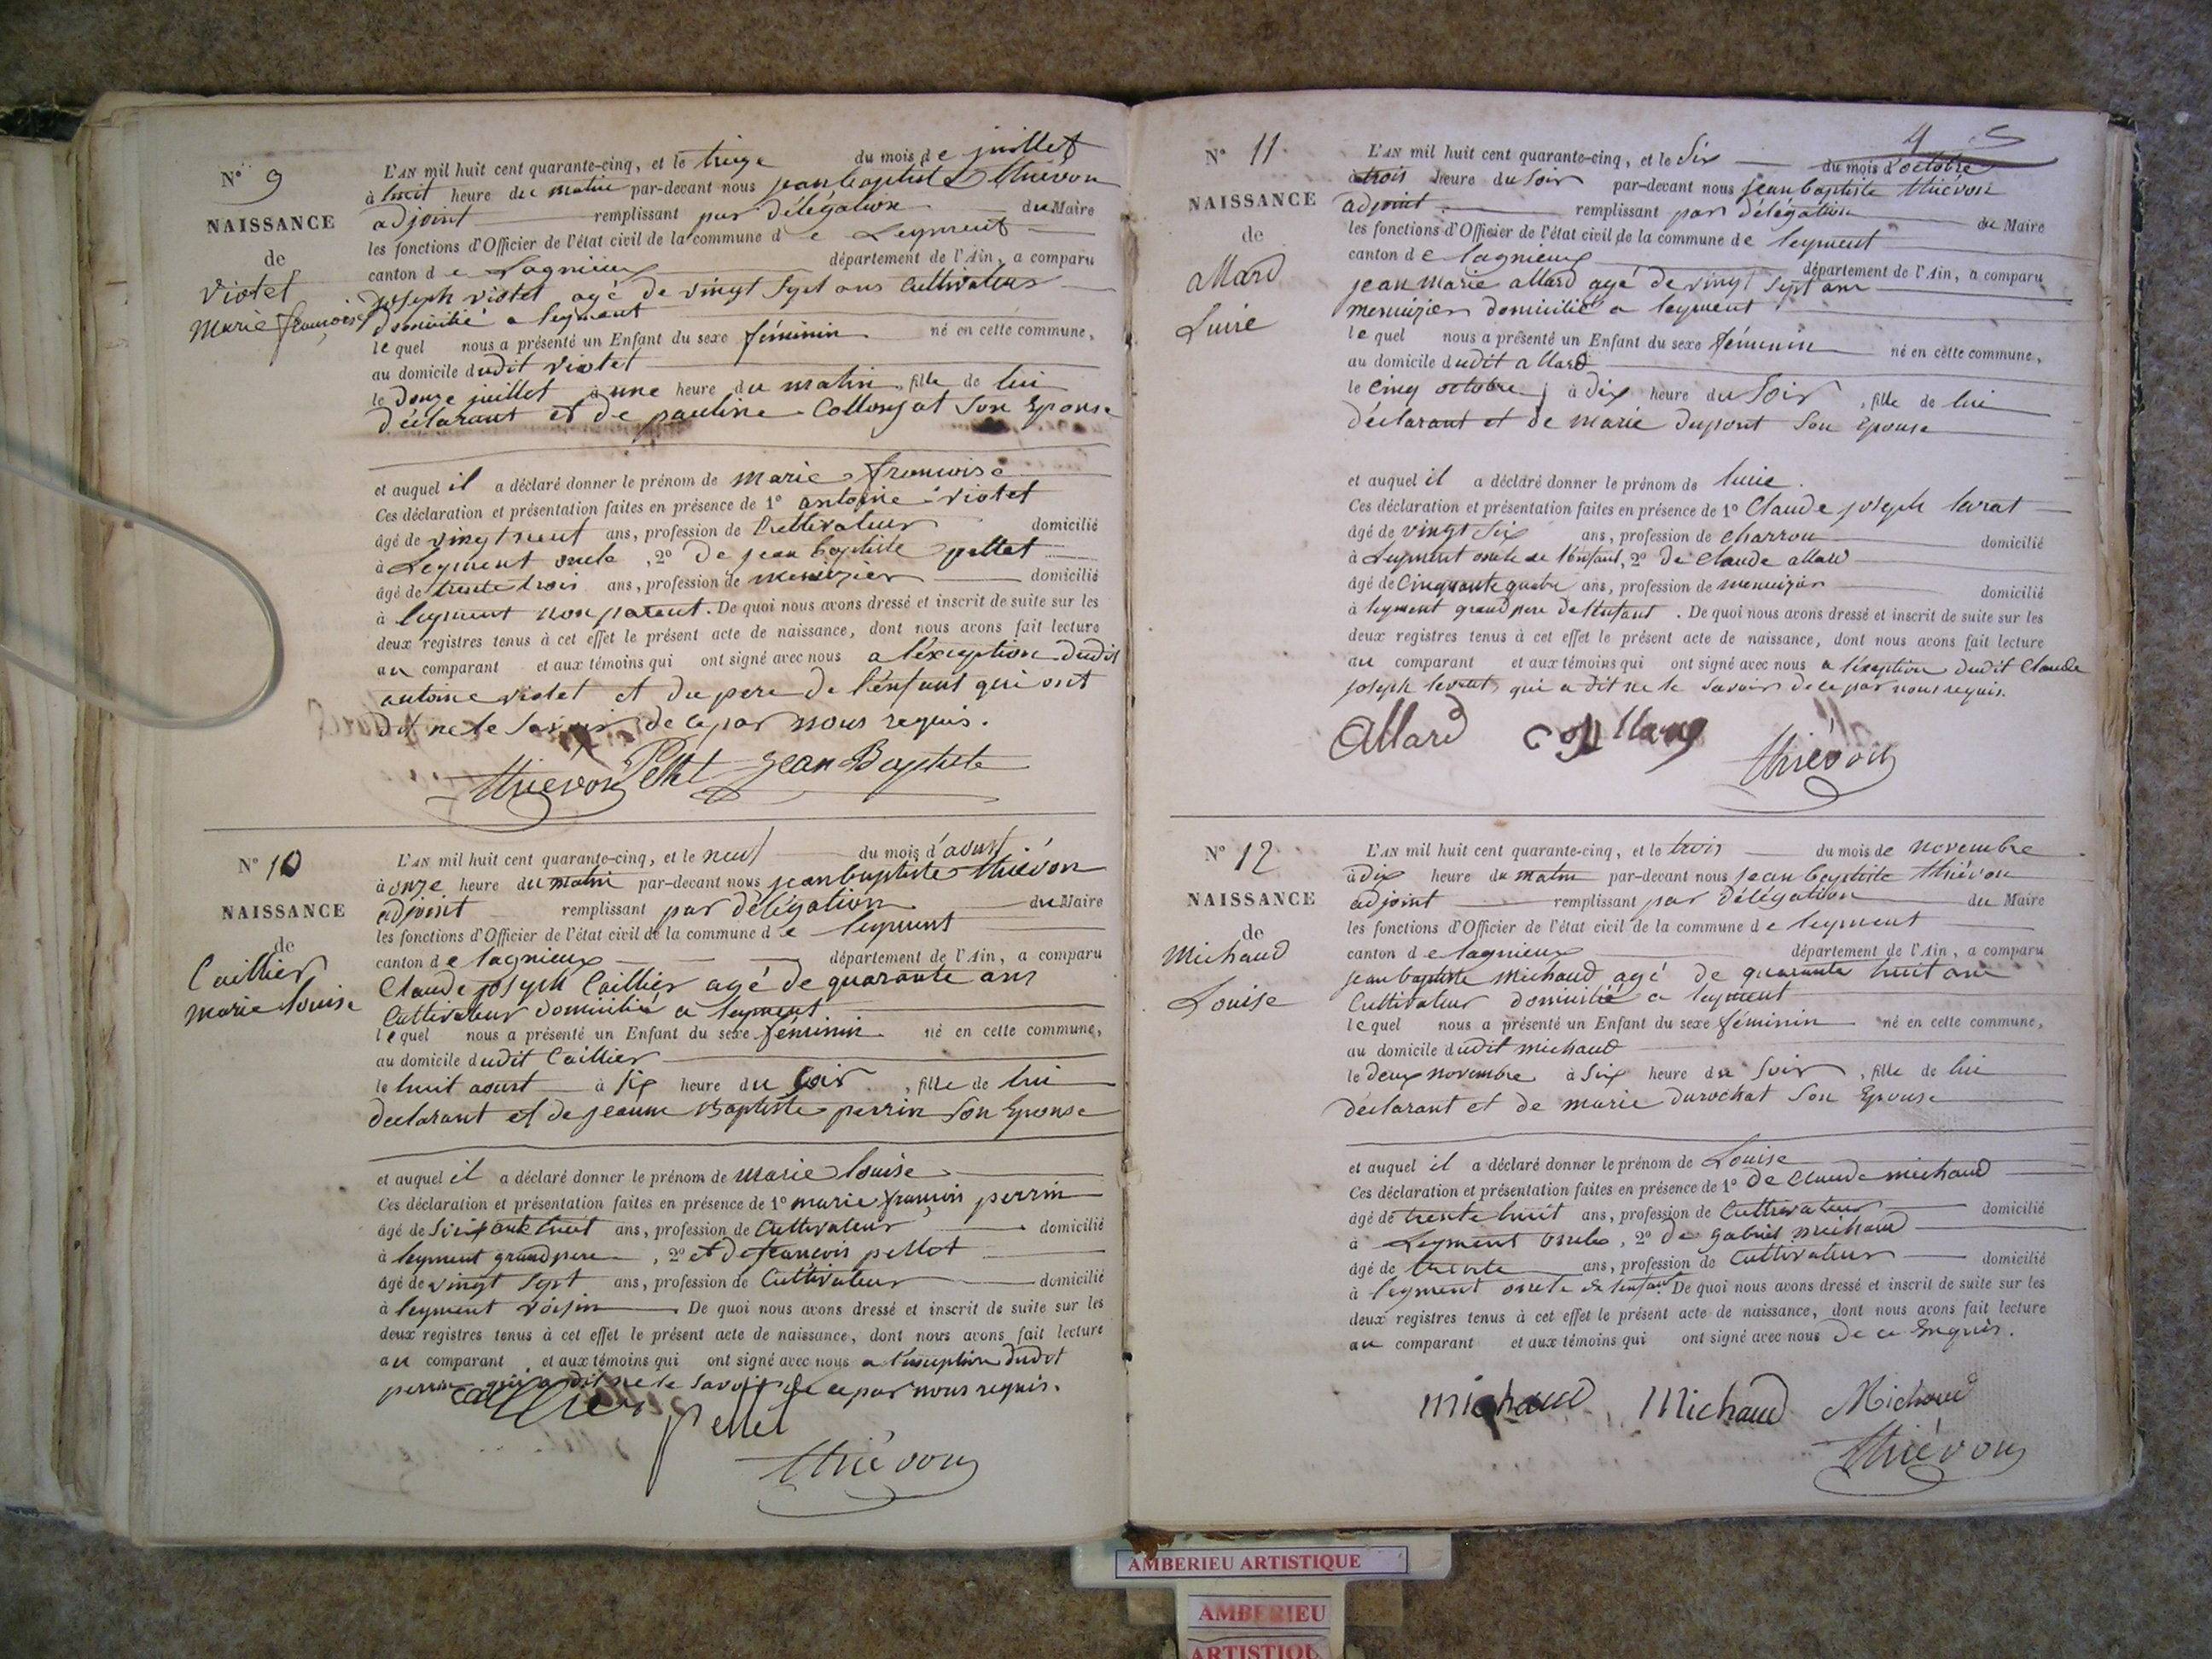 N° 9
NAISSANCE
de
Viotet
Marie françoise
L'AN mil huit cent quarante-cinq, et le treize du mois de juillet
à huit heure du matin par-devant nous jean baptiste thiévon
adjoint remplissant par délégation du Maire
les fonctions d'Officier de l'état civil de la commune de Leyment
canton de Lagnieux département de l'Ain, a comparu
joseph viotet agé de vingt sept ans Cultivateur
domicilié a leyment
lequel nous a présenté un Enfant du sexe féminin né en cette commune,
au domicile dudit Viotet
le douze juillet à une heure du matin, fille de lui
déclarant et de pauline Collonjat Son Epouse
et auquel il a déclaré donner le prénom de marie francoise
Ces déclaration et présentation faites en présence de 1° antoine viotet
âgé de vingt neuf ans, profession de Cultivateur domicilié
à Leyment oncle, 2° de jean baptiste pellet
âgé de trente trois ans, profession de menuizier domicilié
à leyment non parent. De quoi nous avons dressé et inscrit de suite sur les
deux registres tenus à cet effet le présent acte de naissance, dont nous avons fait lecture
au comparant et aux témoins qui ont signé avec nous a l'éxception dudit
antoine viotet et du pere de l'enfant qui ont
dit ne le Savoir de ce par nous requis.
thiévon Pellet jean Baptiste
N° 10
NAISSANCE
de
Caillier
marie louise
L'AN mil huit cent quarante-cinq, et le neuf du mois d'aoust
à onze heure du matin par-devant nous jean baptiste thiévon
adjoint remplissant par délégation du Maire
les fonctions d'Officier de l'état civil de la commune de leyment
canton de lagnieux département de l'Ain, a comparu
Claude joseph Caillier agé de quarante ans
Cultivateur domicilié a leyment
lequel nous a présenté un Enfant du sexe féminin né en cette commune,
au domicile dudit Caillier
le huit aoust à six heure du Soir, fille de lui
declarant et de jeanne Baptiste perrin Son Epouse
et auquel il a déclaré donner le prénom de marie louise
Ces déclaration et présentation faites en présence de 1° marie françois perrin
âgé de Soixante huit ans, profession de Cultivateur domicilié
à leyment grand pere, 2° et de françois pellet
âgé de vingt Sept ans, profession de Cultivateur domicilié
à leyment voisin De quoi nous avons dressé et inscrit de suite sur les
deux registres tenus à cet effet le présent acte de naissance, dont nous avons fait lecture
au comparant et aux témoins qui ont signé avec nous a l'exception dudit
perrin qui a dit ne le Savoir de ce par nous requis.
caillier pellet
thiévon
4 5
N° 11
NAISSANCE
de
allard
Lucie
L'AN mil huit cent quarante-cinq, et le Six du mois d'octobre
à trois heure du Soir par-devant nous jean baptiste thiévon
adjoint remplissant par délégation du Maire
les fonctions d'Officier de l'état civil de la commune de leyment
canton de lagnieux département de l'Ain, a comparu
jean marie allard agé de vingt Sept ans
menuizier domicilié a leyment
lequel nous a présenté un Enfant du sexe féminin né en cette commune,
au domicile dudit allard
le Cinq octobre à dix heure du Soir, fille de lui
déclarant et de marie dupont Son Epouse
et auquel il a déclaré donner le prénom de lucie.
Ces déclaration et présentation faites en présence de 1° Claude joseph levrat
âgé de vingt Six ans, profession de Charron domicilié
à Leyment oncle de l'enfant, 2° de Claude allard
âgé de Cinquante quatre ans, profession de menuizier domicilié
à leyment grand pere de l'enfant. De quoi nous avons dressé et inscrit de suite sur les
deux registres tenus à cet effet le présent acte de naissance, dont nous avons fait lecture
au comparant et aux témoins qui ont signé avec nous a l'éxeption dudit Claude
joseph levrat, qui a dit ne le Savoir de ce par nous requis.
Allard thiévon
N° 12
NAISSANCE
de
Michaud
Louise
L'AN mil huit cent quarante-cinq, et le trois du mois de novembre
à dix heure du matin par-devant nous jean baptiste thiévon
adjoint remplissant par délégation du Maire
les fonctions d'Officier de l'état civil de la commune de leyment
canton de lagnieux département de l'Ain, a comparu
jean baptiste Michaud agé de quarante huit ans
Cultivateur domicilié a leyment
lequel nous a présenté un Enfant du sexe féminin né en cette commune,
au domicile dudit michaud
le deux novembre à Six heure du Soir, fille de lui
déclarant et de marie durochat Son Epouse
et auquel il a déclaré donner le prénom de Louise
Ces déclaration et présentation faites en présence de 1° de Claude michaud
âgé de trente huit ans, profession de Cultivateur domicilié
à Leyment oncle, 2° de gabriel michaud
âgé de trente ans, profession de Cultivateur domicilié
à leyment oncle de l'enfant De quoi nous avons dressé et inscrit de suite sur les
deux registres tenus à cet effet le présent acte de naissance, dont nous avons fait lecture
au comparant et aux témoins qui ont signé avec nous de ce Enquis.
michaud Michaud Michaud
thiévon
AMBERIEU ARTISTIQUE
AMBERIEU
ARTISTIQU